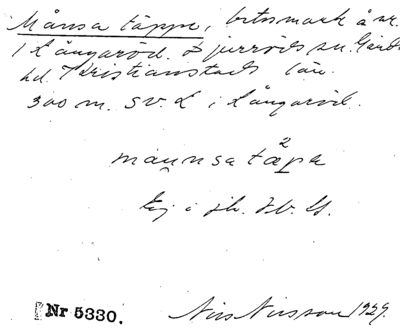 Månsa täppe, betesmark å nr.
1 Långaröd. Djurröds sn. Gärds
hd. Kristianstads län.
300 m. SV. L i Långaröd.
2
Ej i
Nr 5330. Nils Nilsson 1929.